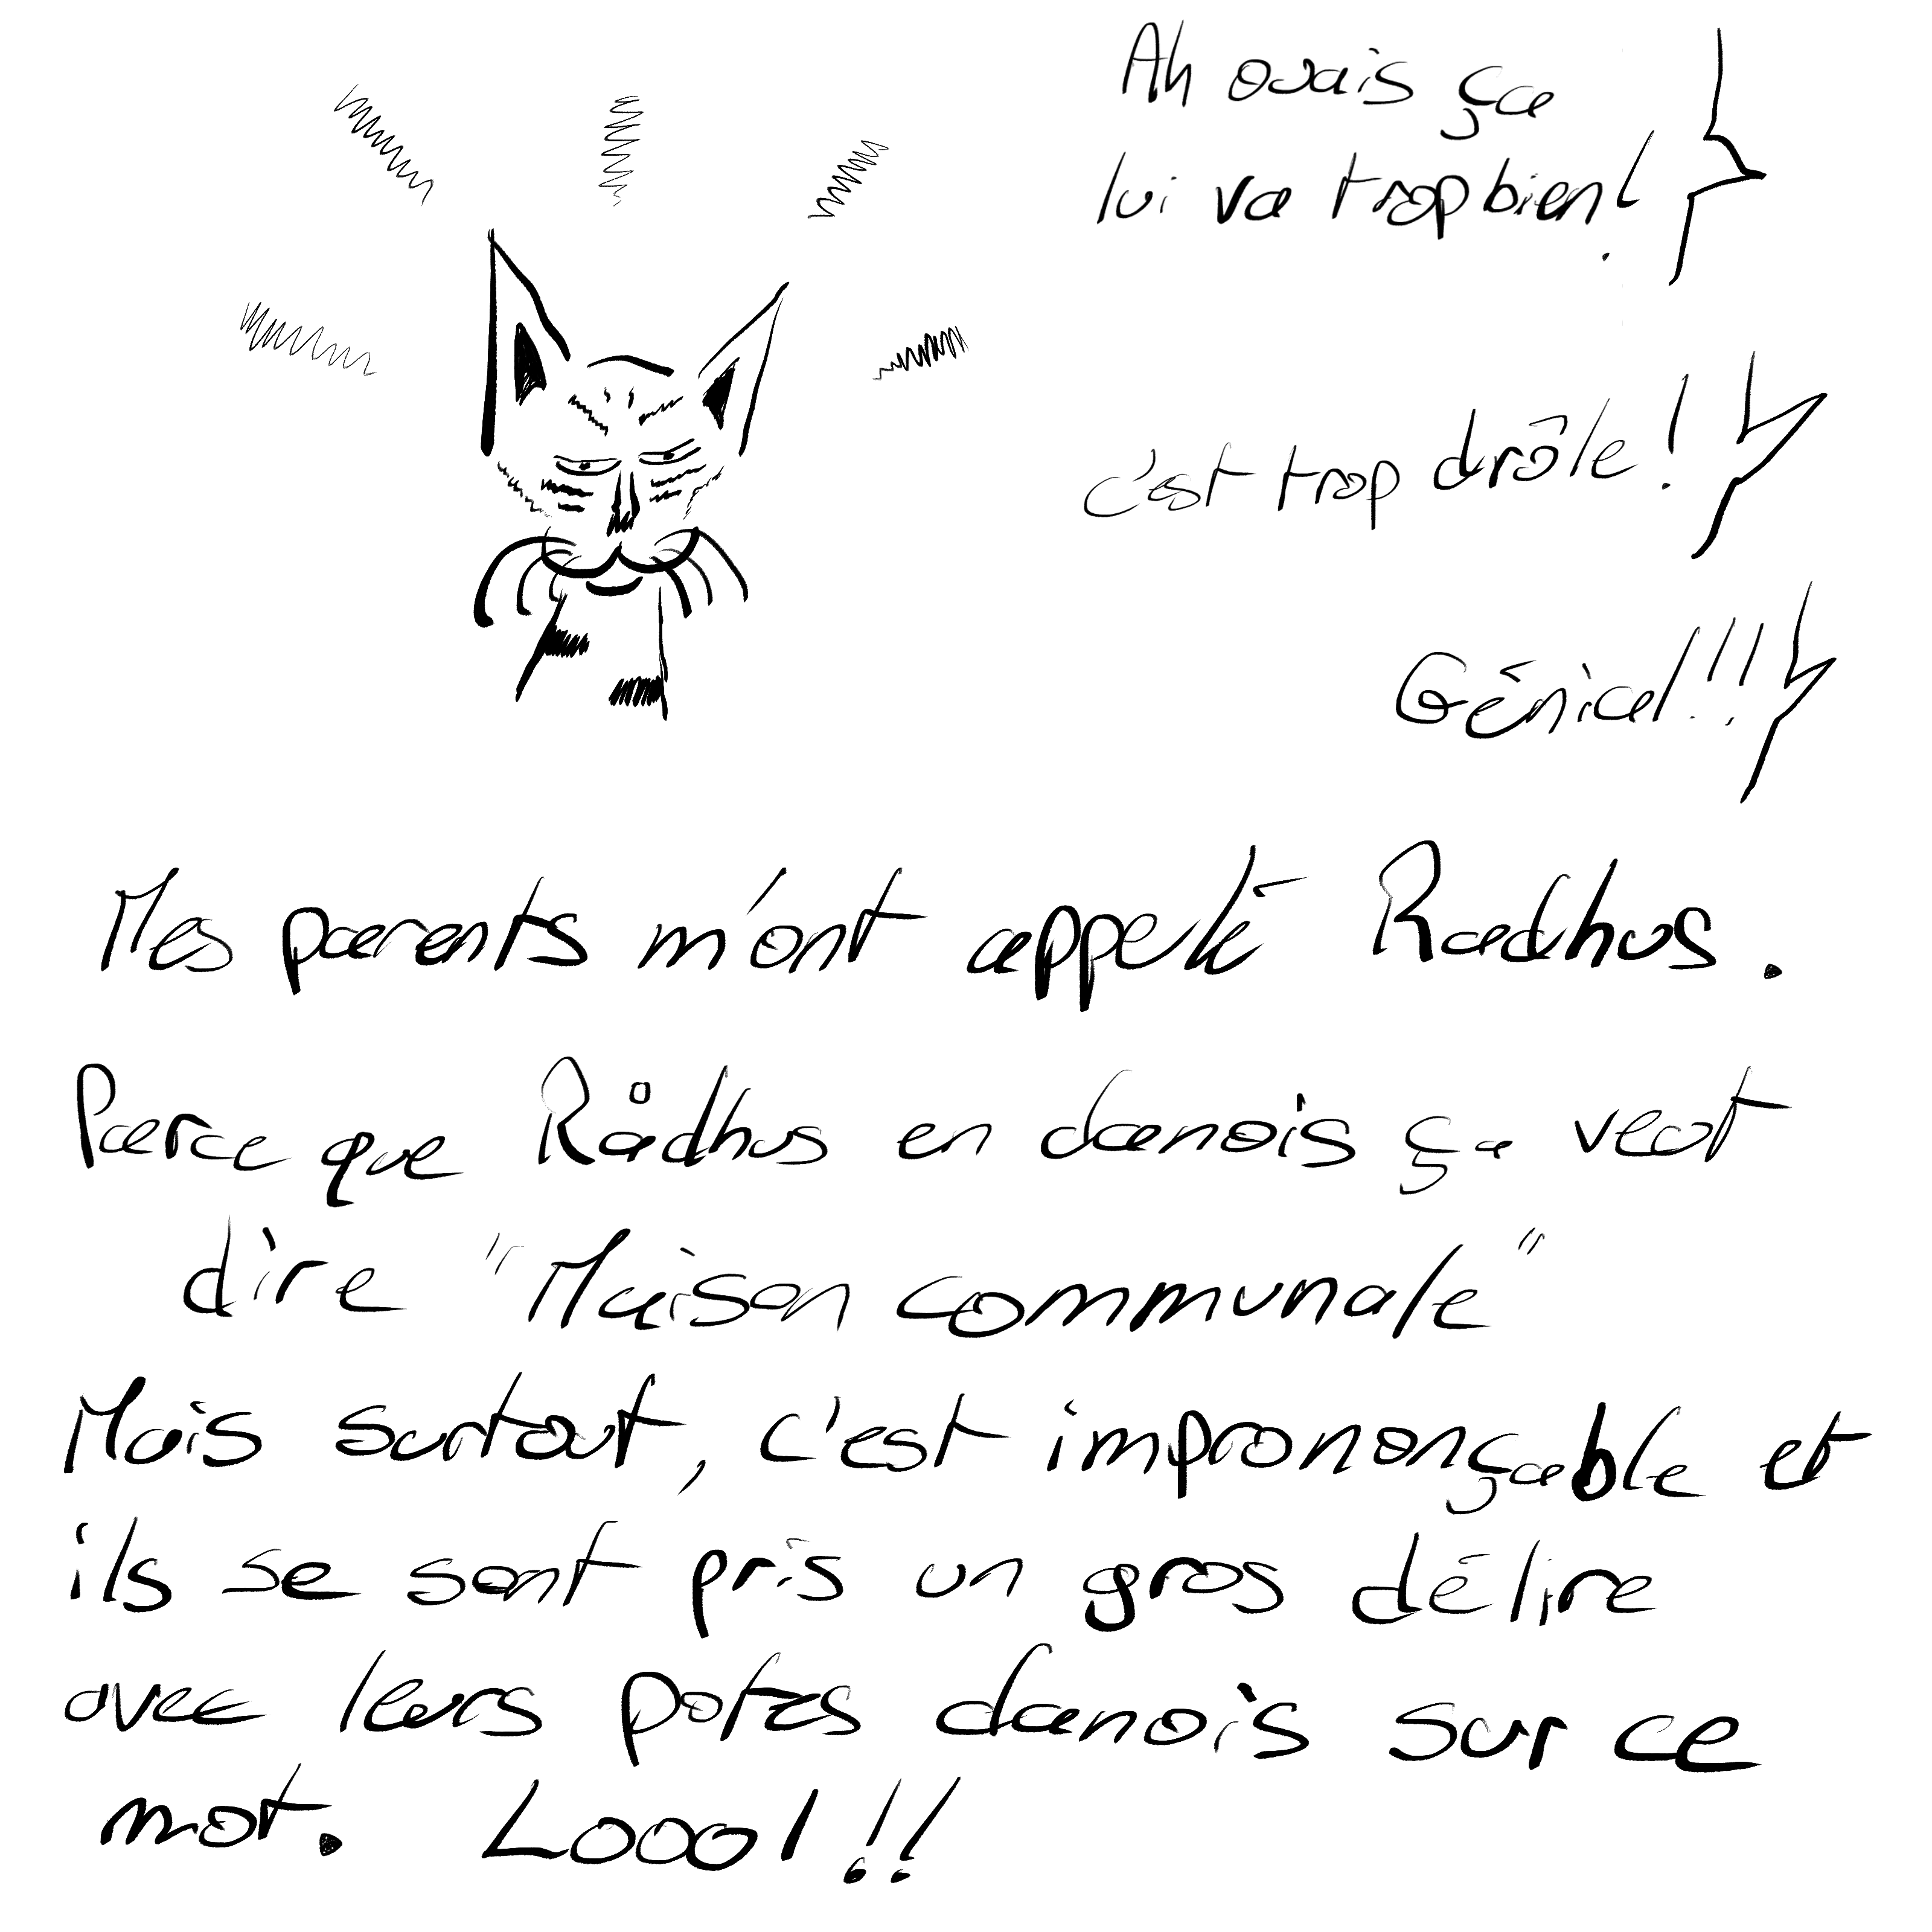 Ah ouais ça
lui va trop bien!
c'est trop drôle!
Génial!!!
Mes parents m'ont appelé Radhus.
Parce que Rådhus en danois ça veut
dire "Maison communale"
Mais surtout, c'est imprononçable et
ils se sont pris un gros délire
avec leurs potes danois sur ce
mot. Looool!!